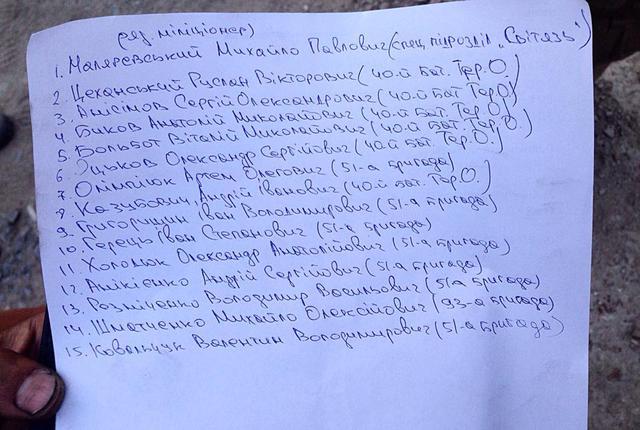 (ряд. міліціонер)
1. Маляревський Михайло Павлович (спец. підрозділ „Світязь")
2. Цеханський Руслан Вікторович (40-й бат. Тер.О.)
3. Анісімов Сергій Олександрович (40-й бат. Тер.О)
4. Биков Анатолій Миколайович (40-й Бат. Тер.О.)
5. Больбот Віталій Миколайович (40-й Бат. Тер.О.)
6. Олександр Сергійович (40-й бат. Тер.О.)
7. Олімпіюк Артем Олегович (51-а бригада)
8. Андрій Іванович (40-й бат. Тер.О.)
9. Григоришин Іван Володимирович (51-а бригада)
10. Герець Іван Степанович (51-а бригада)
11. Холодюк Олександр Анатолійович (51-а бригада)
12. Анікієнко Андрій Сергійович (51-а бригада)
13. Розніченко Володимир Васильович (51а бригада)
14. Шматченко Михайло Олексійович (93-а бригада)
15. Ковальчук Валентин Володимирович (51-а бригада)